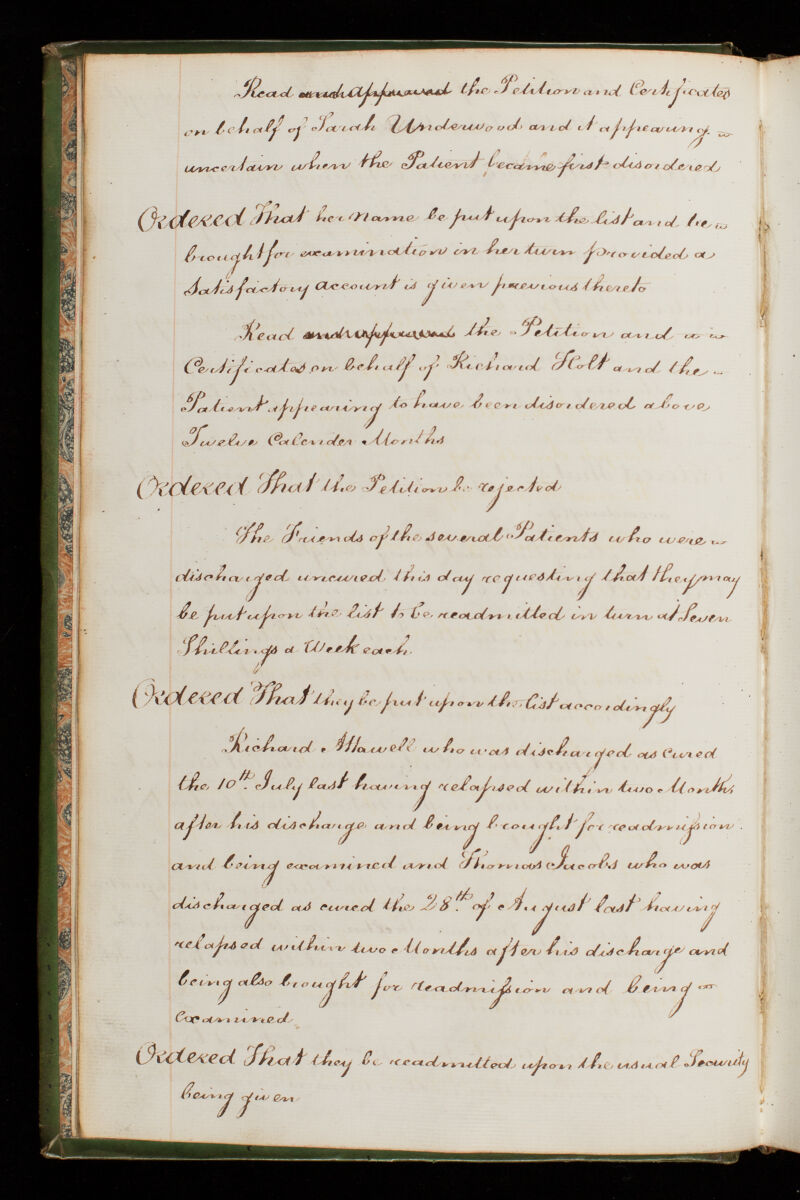 Read and approved the Petition and Certificates
on behalf of Sarah Underwood and it appearing
uncertain when the Patient became first disordered
Ordered That her Name be put upon the list and be
brought for examination in her turn provided a
Satisfactory Account is given previous thereto
Read and approved the Petition and
Certificates on behalf of Richard Holt and the
Patient appearing to have been disordered above
Twelve Calender Months
Ordered That the Petition be rejected
The Friends of the several Patients who were
discharged uncured this day requesting that they may
be put upon the list to be readmitted in turn at Seven
Shillings a Week each.
Ordered That they be put upon the list accordingly
Richard Mawell who was discharged as cured
the 10th. July last having relapsed within two Months
after his discharge and being brought for readmission
and being examined and Thomas Jacobs who was
discharged as cured the 28th. of August last having
relapsed within two Months after his discharge and
being also brought for readmission and being
examined
Ordered That they be readmitted upon the usual Security
being given